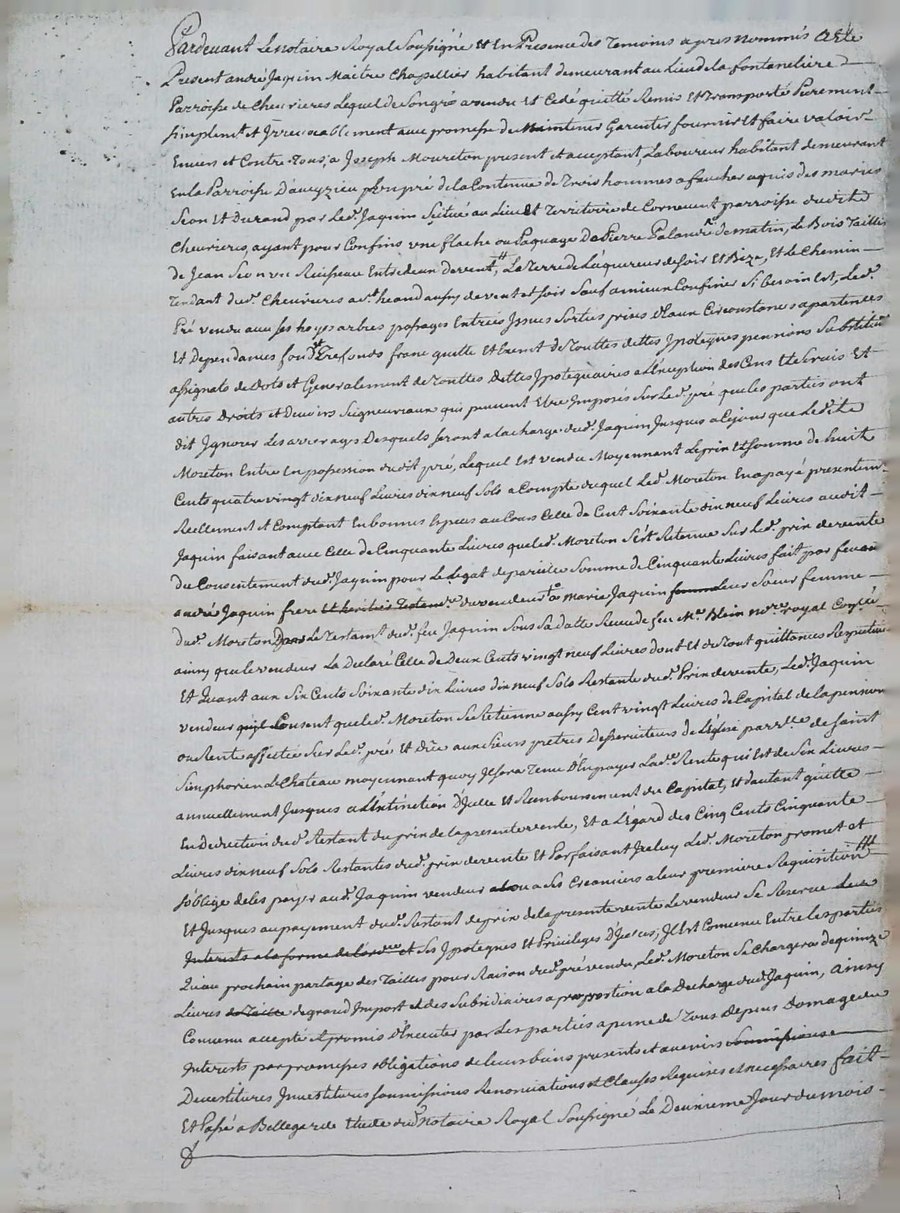 Pardevant Le notaire Royal Soussigné et En Presence des Temoins apres nommés a Eté
Present andré Jaquin Maitre Chapellier habitant demeurant au Lieu de la fontaneliere
Parroisse de Chevrieres Lequel de Son gré a vendu et Cedé quitté Remis Et Transporté Purement
Simplemt. et Irrevocablement avec promesse de Maintenir Garentir fournir Et faire valoir
Envers et Contre Tous, a Joseph Moureton present et acceptant Laboureur habitant demeurant
En la Parroisse D'aveyzieu pré de la Contenue de Trois hommes a faucher aquis des maries
Seon Et Durand par Led. Jaquin Scitué au Lieu Et Territoire de Cornevent parroisse dudit
Chevrieres, ayant pour Confins une flache ou Paquage De Pierre de matin, Le Bois Taillis
de Jean Seon un Ruisseau Entredeux de vent, La Terre de Laqueureur de Soir Et Bize, Et le Chemin
Tendant dud. Chevrieres a aussy de vent et soir Sauf a mieux Confiner Si besoin Est, Led.
Pré vendu avec Ses hayes arbres passages Entrées Issues Sorties prises d'Eaux Circonstances apartences
Et Dependances fond Et Trefonds franc quitte Et Exempt de Touttes dettes Ipoteques pensions Substitu
assignats de dots et Generalement de Touttes Dettes Ipotequaires a L'Exception des Cens Et Servis Et
autres Droits et Devoirs Seigneuriaux qui peuvent Etre Imposés Sur Led. pré que les parties ont
dit Ignorer Les arrerages Desquels Seront a la charge dud. Jaquin Jusques a Cejour que Ledit
Moreton Entre En possession dudit pré, Lequel Est vendu Moyennant Le prix Et Somme de huit
Cents quatre vingt dix neuf Livres dix neuf Sols a Compte duquel Led. Moreton En a payé presentemt.
Reellement et Comptant En bonnes Especes au Cours Celle de Cent Soixante dix neuf Livres audit
Jaquin faisant avec Celle de Cinquante Livres que led. Moreton S'est Retenue Sur Led. prix de vente
du Consentement dud. Jaquin pour Le Legat de pareille Somme de Cinquante Livres fait par feu
andré Jaquin frere Et heritier du vendeur a Marie Jaquin Leur Sœur femme
dud. Moreton Dans Le Testamt. dud. feu Jaquin Sous Sa datte Receu de feu Me. Blein nore. royal
ainsy que le vendeur La Declaré Celle de Deux Cents vingt neuf Livres dont Et de Tout quittances Respectives
Et Quant aux Six Cents Soixante dix Livres dix neuf Sols Restante dud. Prix de vente, Led. Jaquin
vendeur Consent que led. Moreton Se Retienne aussy Cent vingt Livres de Capital de la pension
ou Rente affectée Sur Led. pré Et Düe aux Sieurs pretres Desserviteurs de L'église parrlle. de Saint
Simphorien Le Chateau moyennant quoy Il Sera Tenu D'En payer Lade. Rente qui Est de Six Livres
annuellement Jusques a L'Extinction D'Icelle Et Remboursement du Capital, Et d'autant quitte
En deduction dud. Restant du prix de la presente vente, Et a L'Egard des Cinq Cents Cinquante
Livres dix neuf Sols Restantes dud. prix de vente Et Parfaisant Icelluy Led. Moreton promet et
s'oblige de les payer aud. Jaquin vendeur ou a Ses Creanciers a leur premiere Requisition
Et Jusques au payement dud. Restant de prix de la presente vente Le vendeur Se Reserve
Interests a la forme de Ses Ipoteques Et Privileges D'Iceux; Il Est Convenu Entre Les parties
Qu'au prochain partage des Tailles pour Raison dud. pré vendu, Led. Moreton Se Chargera de quinze
Livres de Taille de grand Import et des Subsidiaires a proportion a la Decharge dud. Jaquin, ainsy
Convenu accepté Et promis d'Executer par Les parties a peine de Tous Depens Domages
Interests par promesses obligations de leurs biens presents et avenirs Soumissions
Devestitures Investitures Soumissions Renonciations et Clauses Requises et necessaires fait
Et Passé a Bellegarde Etude dud. Notaire Royal Soussigné Le Deuxieme Jour du mois